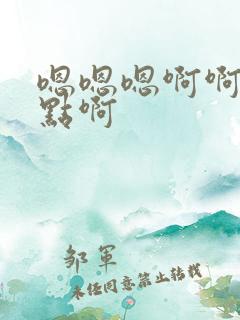 嗯嗯嗯啊啊
點啊
邹軍
未经同意禁止转载